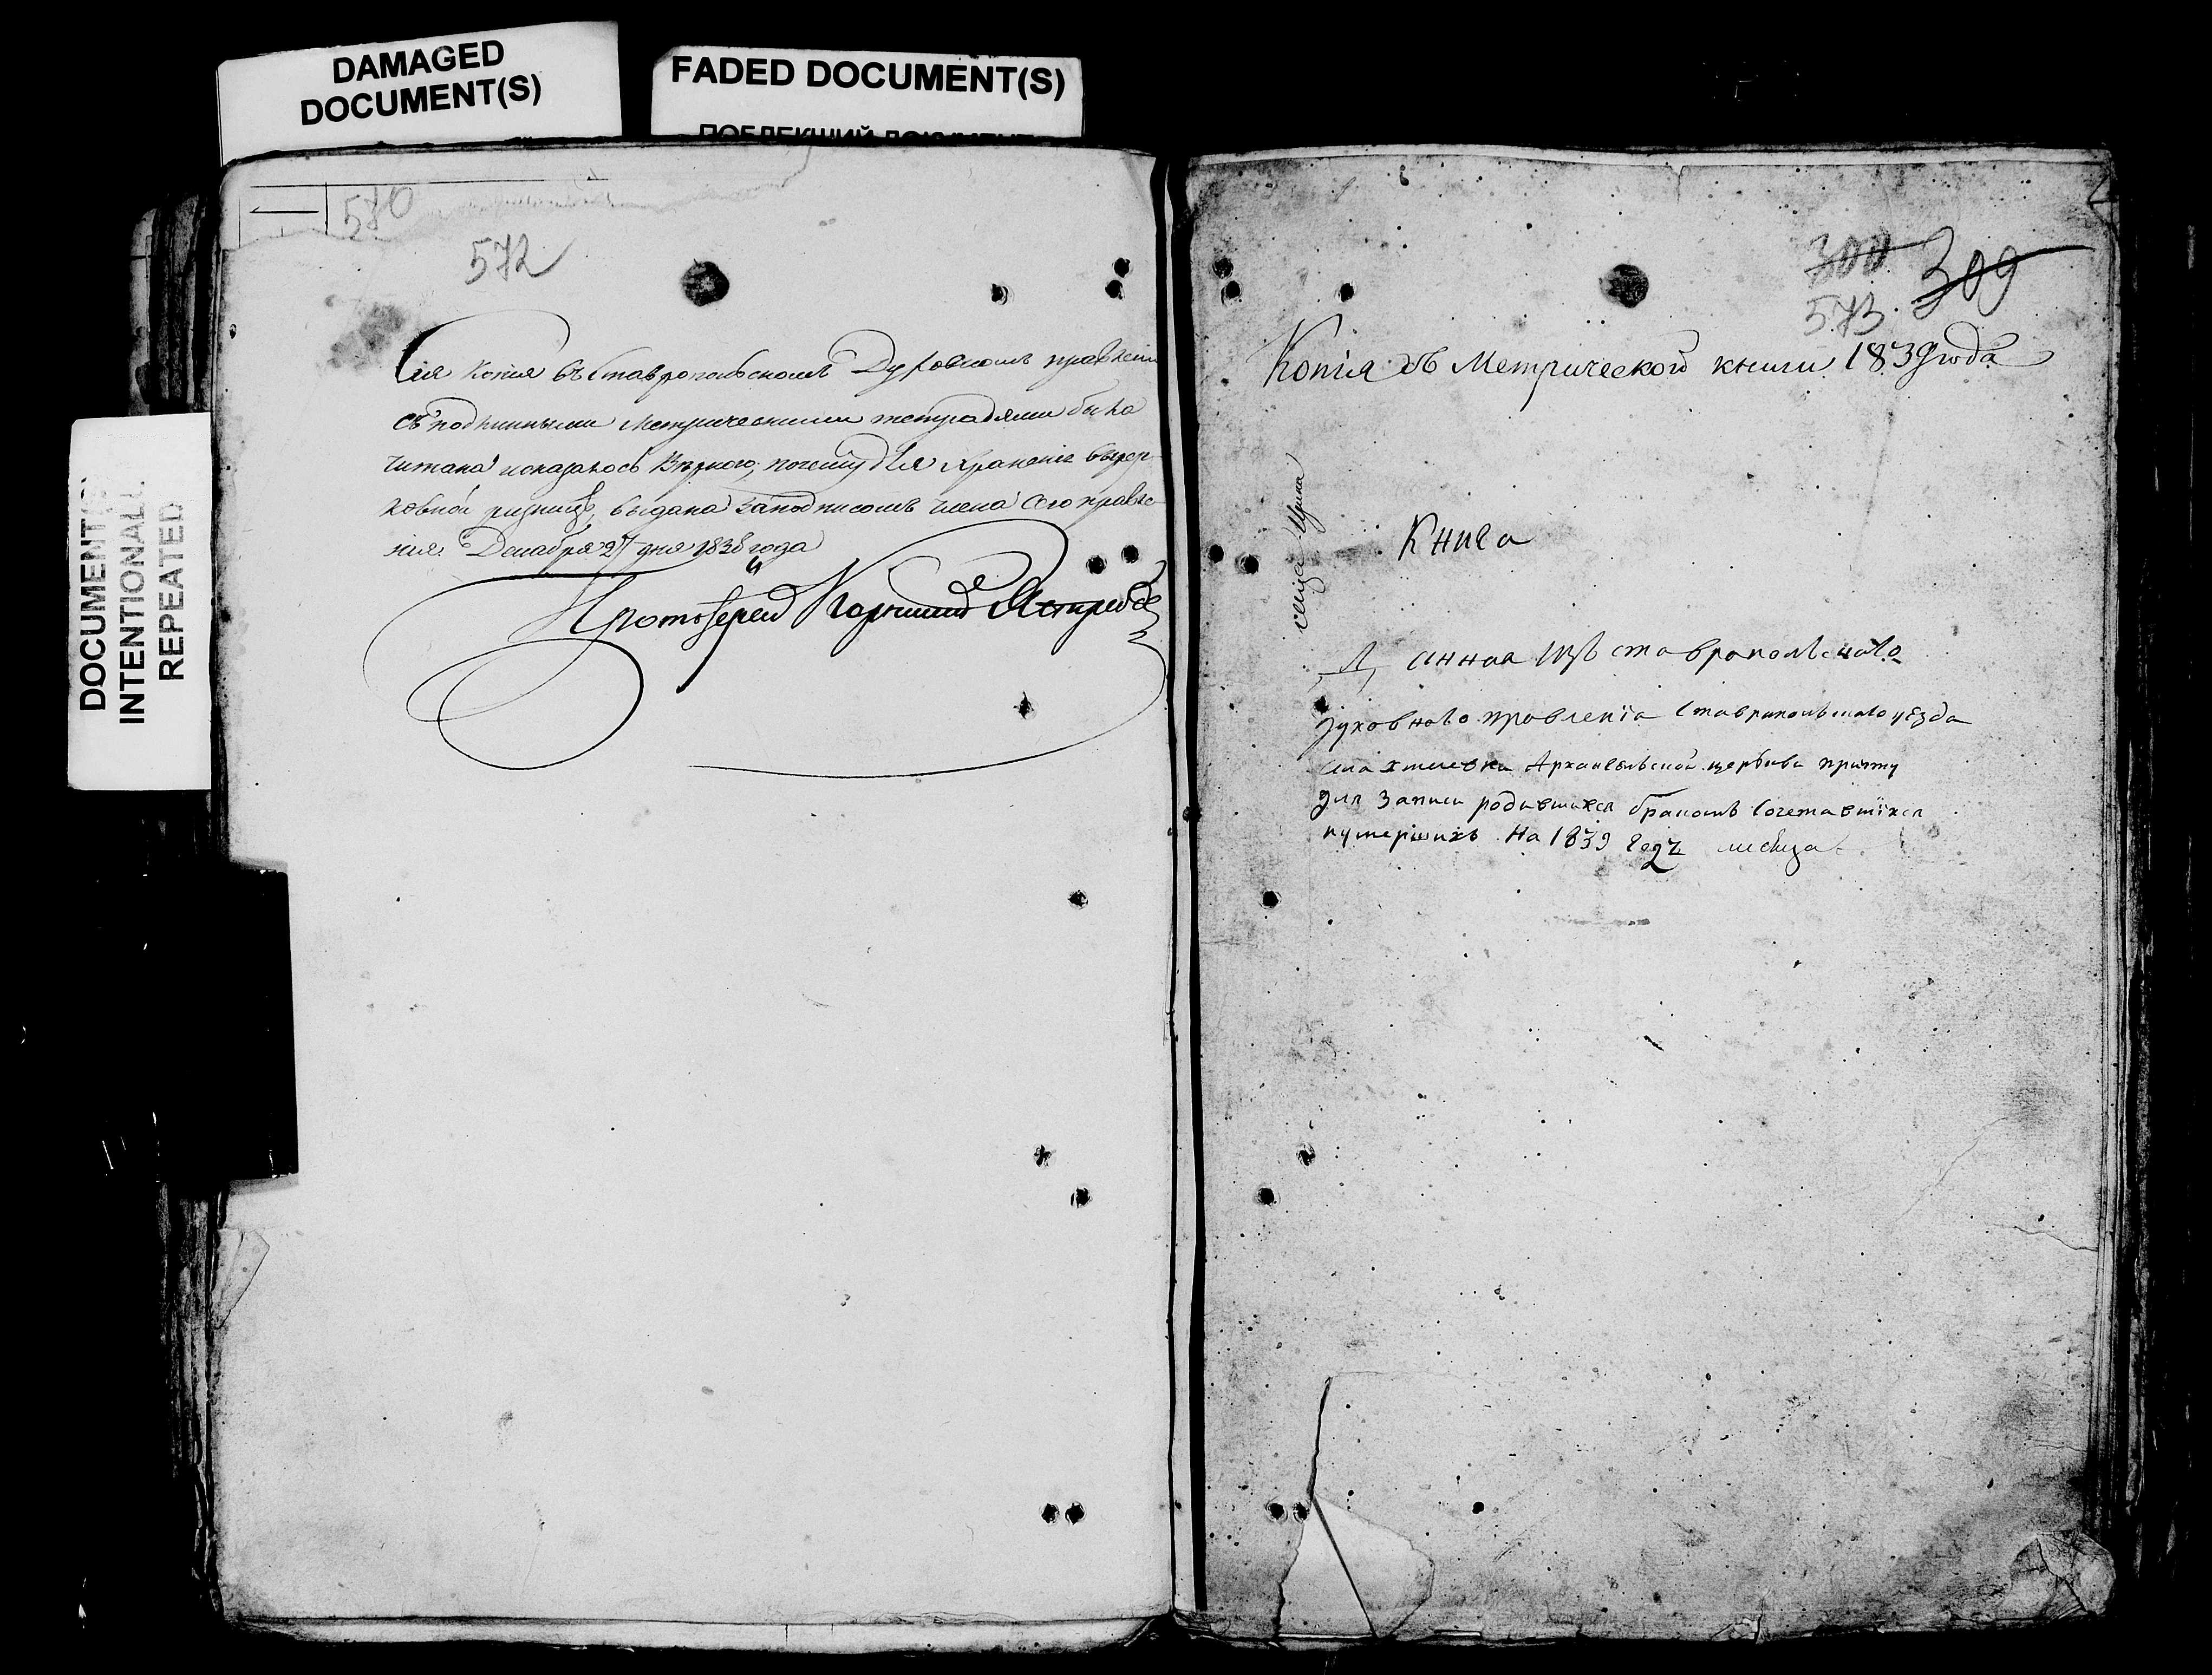 DAMAGED
DOCUMENT(S)
FADED DOCUMENT(S)
ПОБЛЕКШИЙ ДОКУМЕНТ
DOCUMENT(S)
INTENTIONALL
REPEATED
570
572
Сія Копія въ Ставропольскомъ Духовномъ правленіи
съ подлинными Метрическими тетрадями была
читана и оказалось вѣрною, почему для храненія въ цер
ковной ризницѣ, выдана за подписомъ члена сего правле
нія. Декабря 27 дня 1838 года
Протоіерей Корнилій
300 309
573.
Копія съ Метрической книги 1839 года
Книга
Данная изъ ставропольскаго
духовнаго правленія Ставропольскаго уѣзда
села Архангельской церкви причту
для записи родившихся бракомъ сочетавшихся
и умершихъ на 1839 годъ